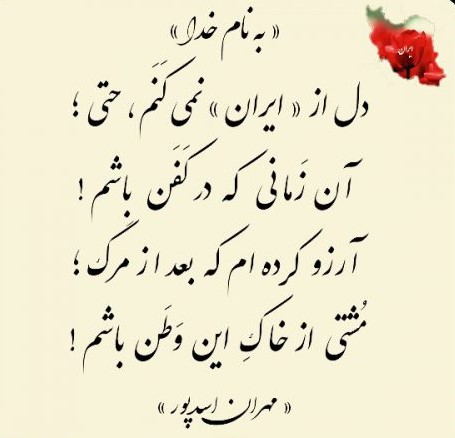 « به نام خدا »
ایران...
دل از « ایران » نمی کَنَم ، حتی ؛
آن زَمانی که در کَفَن باشم !
آرزو کرده ام که بعد از مرگ ؛
مُشتی از خاکِ این وَطَن باشم !
« مهران اسدپور »